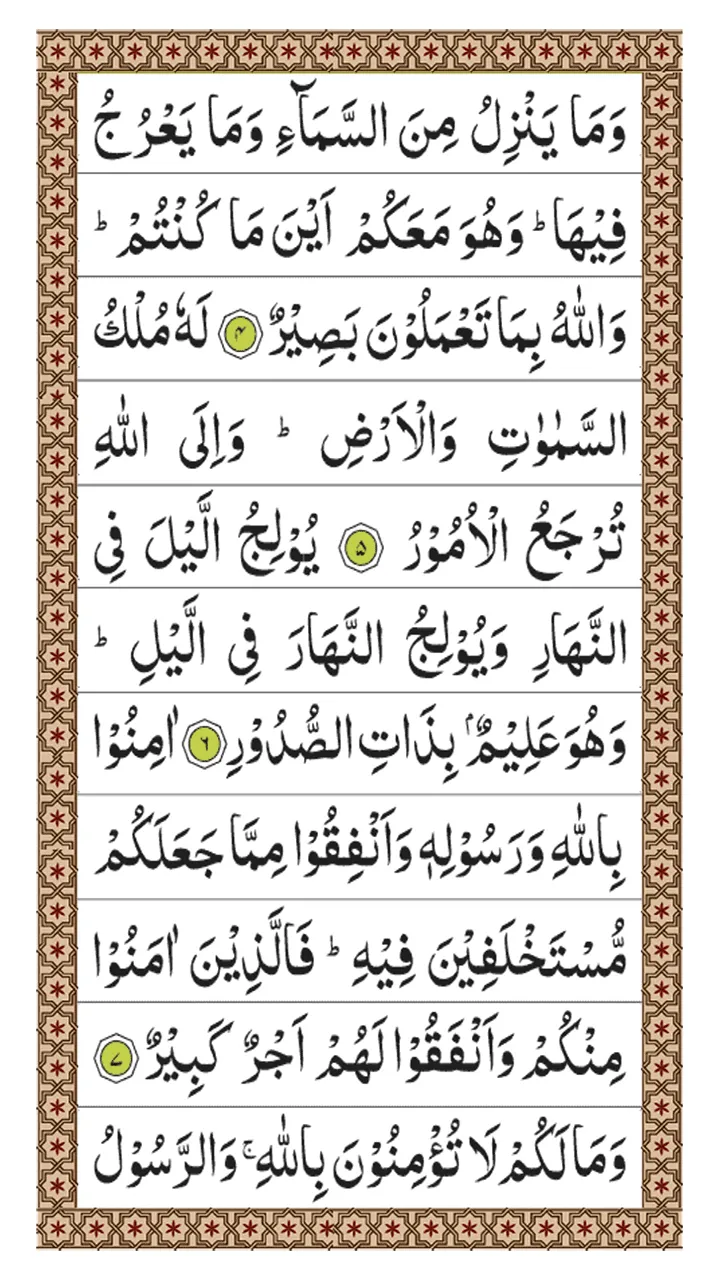 وَمَا يَنْزِلُ مِنَ السَّمَآءِ وَمَا يَعْرُجُ
فِيْهَا ؕ وَهُوَ مَعَكُمْ اَيْنَ مَا كُنْتُمْ ؕ
وَاللّٰهُ بِمَا تَعْمَلُوْنَ بَصِيْرٌ ۴ لَهٗ مُلْكُ
السَّمٰوٰتِ وَالْاَرْضِ ؕ وَاِلَى اللّٰهِ
تُرْجَعُ الْاُمُوْرُ ۵ يُوْلِجُ الَّيْلَ فِى
النَّهَارِ وَيُوْلِجُ النَّهَارَ فِى الَّيْلِ ؕ
وَهُوَ عَلِيْمٌۢ بِذَاتِ الصُّدُوْرِ ۶ اٰمِنُوْا
بِاللّٰهِ وَرَسُوْلِهٖ وَاَنْفِقُوْا مِمَّا جَعَلَكُمْ
مُّسْتَخْلَفِيْنَ فِيْهِ ؕ فَالَّذِيْنَ اٰمَنُوْا
مِنْكُمْ وَاَنْفَقُوْا لَهُمْ اَجْرٌ كَبِيْرٌ ۷
وَمَا لَكُمْ لَا تُؤْمِنُوْنَ بِاللّٰهِ ۚ وَالرَّسُوْلُ